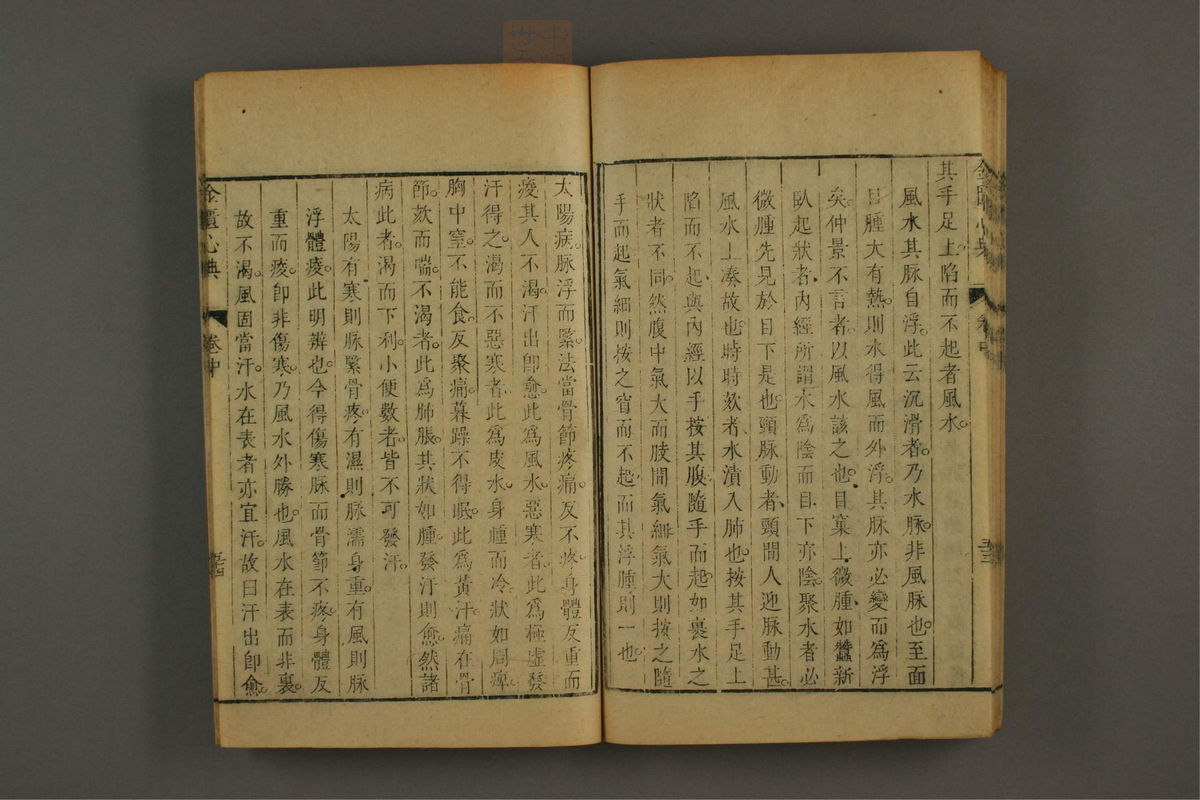 金匱心典
卷中
五三
其手足上陷而不起者風水。
風水其脉自浮。此云沉滑者。乃水脉。非風脉也。至面
目腫大有熱。則水得風而外浮。其脉亦必變而爲浮
矣。仲景不言者。以風水該之也。目窠上微腫。如蠶新
臥起狀者。內經所謂水爲陰而目下亦陰。聚水者必
微腫先見於目下是也。頸脉動者。頸間人迎脉動甚。
風水上凑故也。時時欬者。水漬入肺也。按其手足上
陷而不起。與內經以手按其腹。隨手而起。如裹水之
狀者不同。然腹中氣大而肢間氣細。氣大則按之隨
手而起。氣細則按之窅而不起。而其浮腫則一也
太陽病。脉浮而緊。法當骨節疼痛。反不疼。身體反重而
痠。其人不渴。汗出即愈。此爲風水。惡寒者。此爲極虛發
汗得之。渴而不惡寒者。此爲皮水。身腫而冷。狀如周痺。
胸中窒。不能食。反聚痛。暮躁不得眠。此爲黃汗。痛在骨
節。欬而喘。不渴者。此爲肺脹。其狀如腫。發汗則愈。然諸
病此者。渴而下利。小便數者。皆不可發汗。
太陽有寒則脉緊骨疼。有濕則脉濡身重。有風則脉
浮體痠。此明辨也。今得傷寒脉而骨節不疼。身體反
重而痠。即非傷寒。乃風水外勝也。風水在表而非裏。
故不渴。風固當汗。水在表者亦宜汗。故曰汗出即愈。
金匱心典
卷中
五四